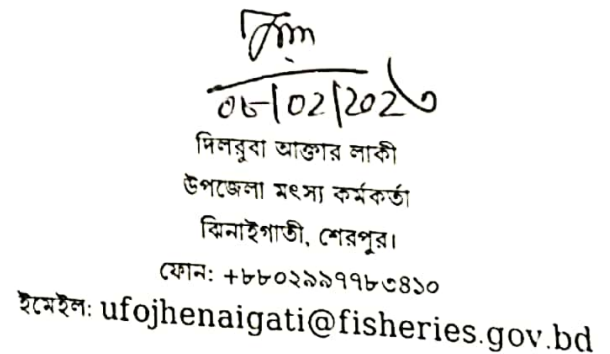 ০৮/০২/২০২৩
দিলরুবা আক্তার লাকী
উপজেলা মৎস্য কর্মকর্তা
ঝিনাইগাতী, শেরপুর।
ফোন: +৮৮০২৯৯৭৭৮৩৪১০
ইমেইল: ufojhenaigati@fisheries.gov.bd